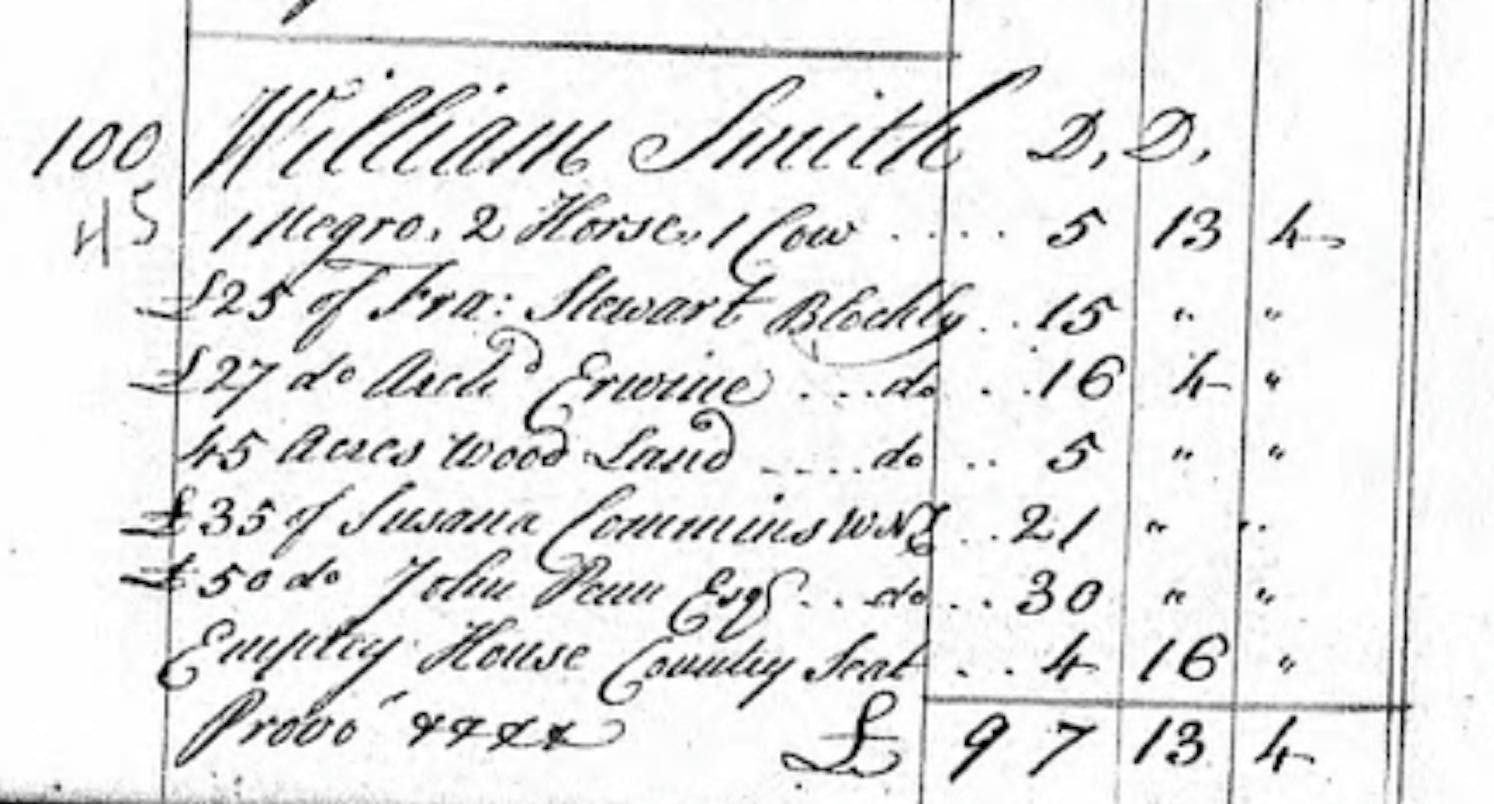 100 William Smith D, D,
45 1 Negro, 2 Horse, 1 Cow .... 5 13 4
£25 of Fra: Stewart Blockly .. 15 " "
£27 do Archd Erwine ... do .. 16 4 "
45 Acres Wood Land .... do .. 5 " "
£35 of Susana Commins WNL .. 21 " "
£50 do John Penn Esqr .. do .. 30 " "
Emptey House Country Seat .. 4 16 "
Provo' £ 97 13 4